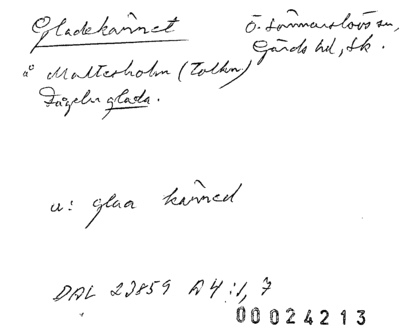 Gladekärret Ö. Sönnarslövs sn,
å Maltesholm (Tolkn) Gärds hd, Sk.
Fågeln glada.
u: glaa kärred
DAL 23859 A4:1, 7
00024213